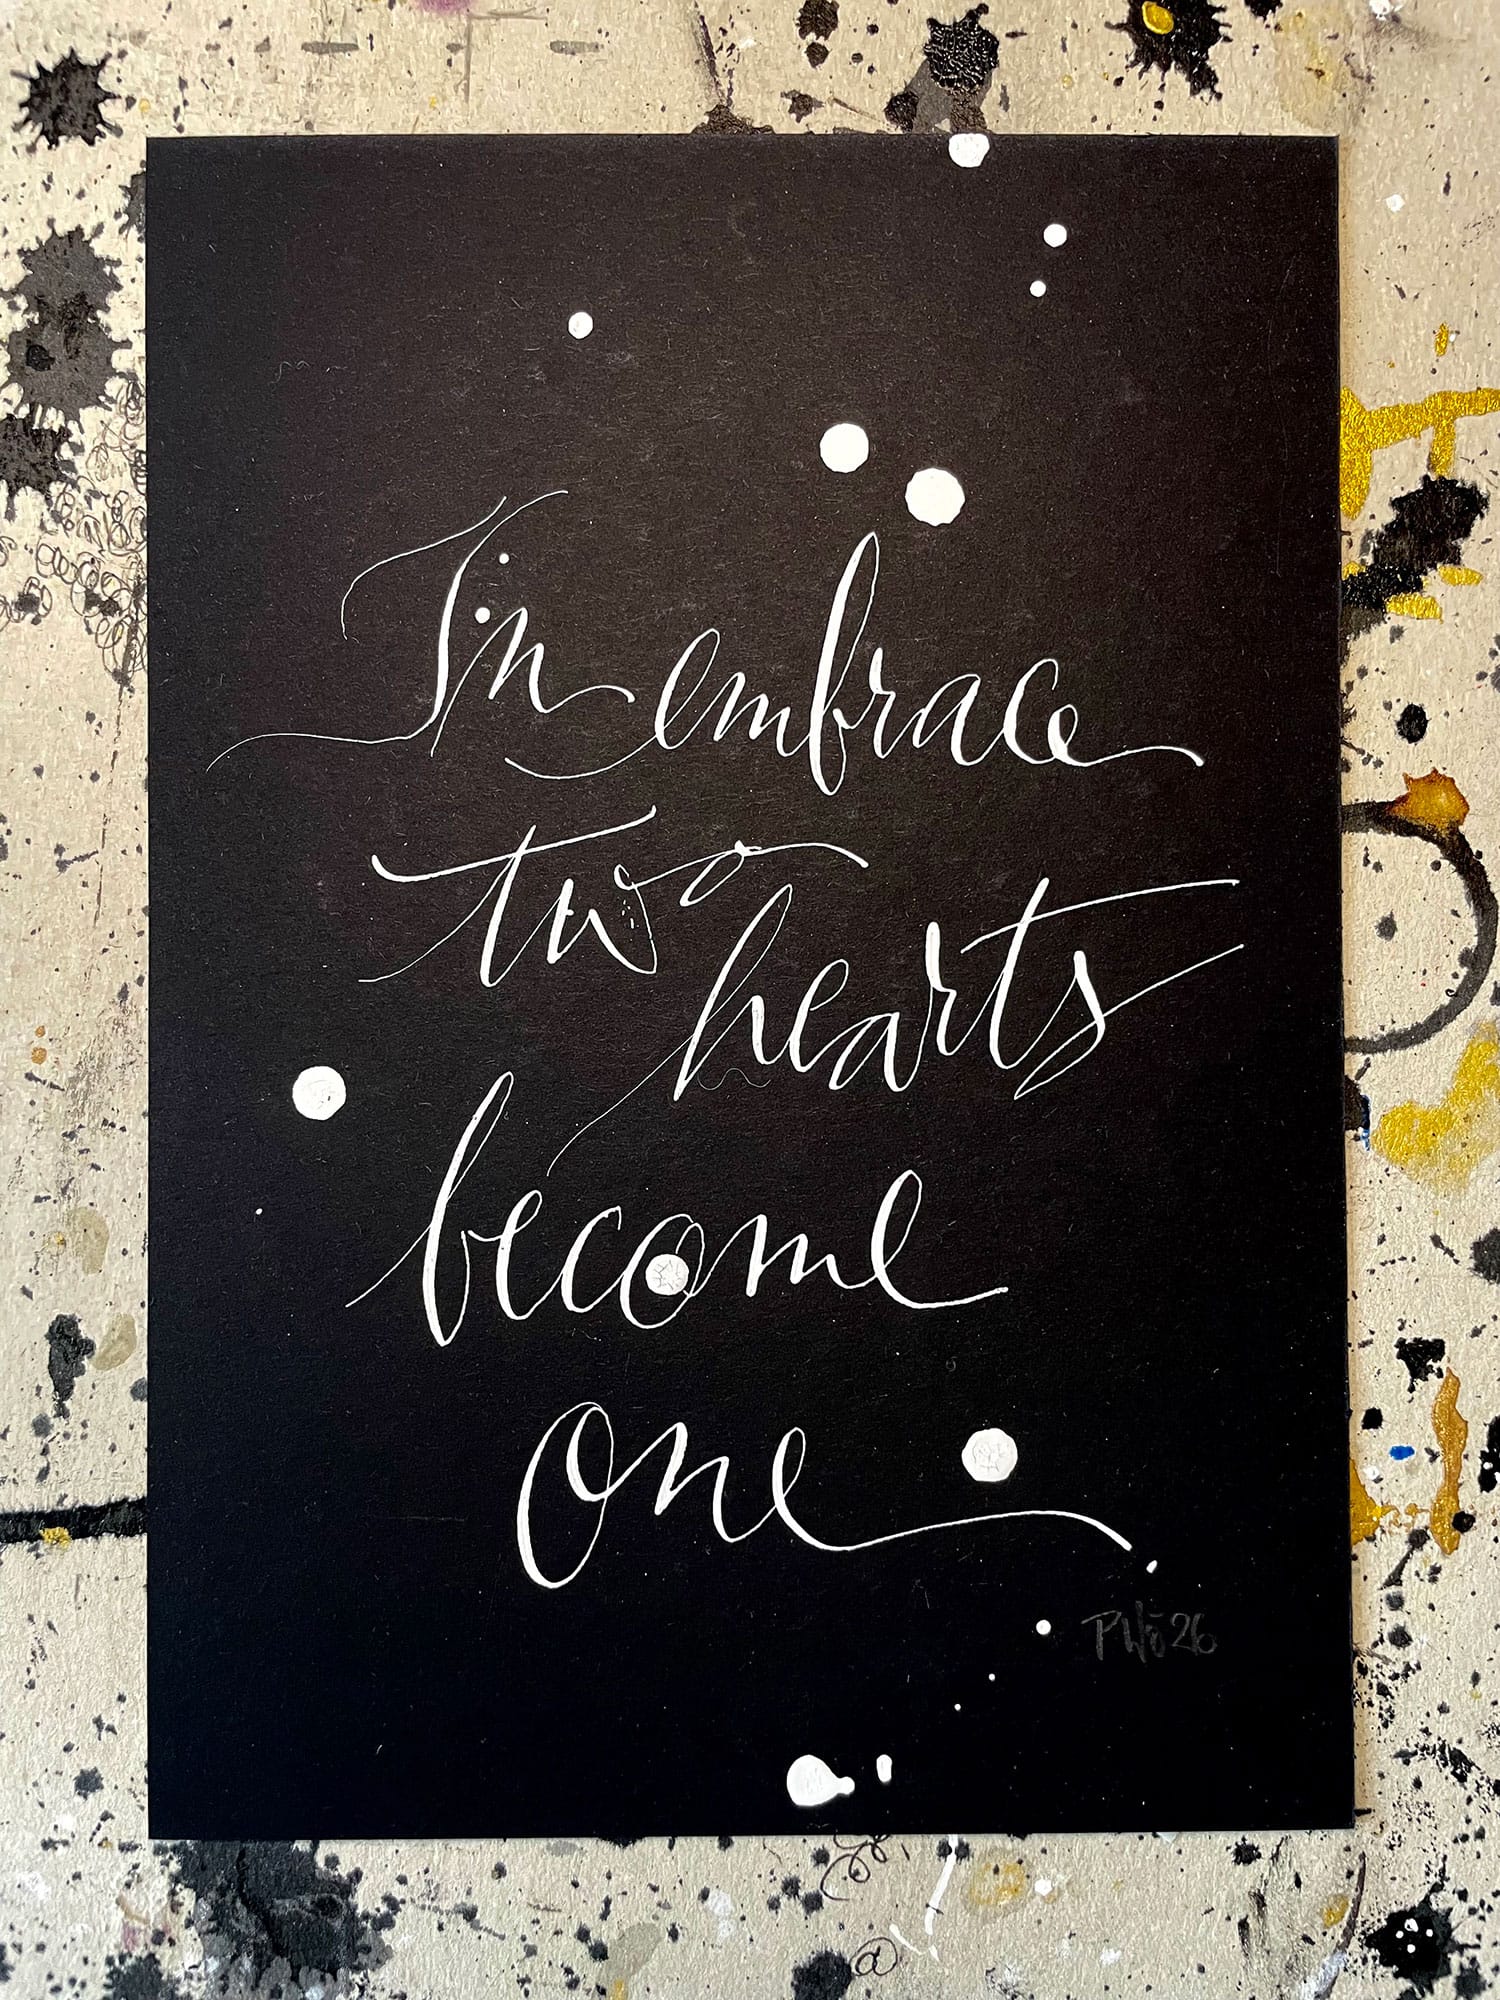 In embrace
two hearts
become
one
PWö26
@